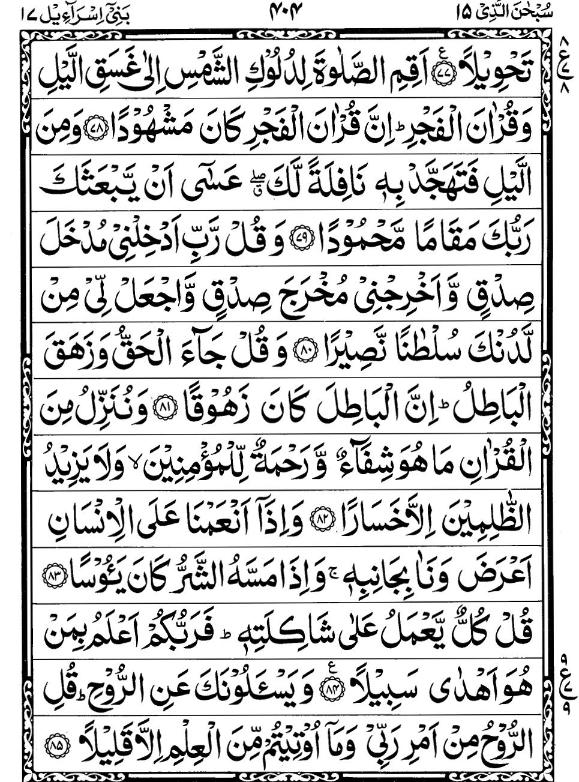 سُبْحٰنَ الَّذِیْ ١٥ ٤٠٤ بَنِیْٓ اِسْرَآءِیْل ١٧
تَحْوِیْلًا ﴿٧٧﴾ اَقِمِ الصَّلٰوةَ لِدُلُوْكِ الشَّمْسِ اِلٰی غَسَقِ الَّیْلِ
وَقُرْاٰنَ الْفَجْرِ ؕ اِنَّ قُرْاٰنَ الْفَجْرِ كَانَ مَشْهُوْدًا ﴿٧٨﴾ وَمِنَ
الَّیْلِ فَتَهَجَّدْ بِهٖ نَافِلَةً لَّكَ ۖۗ عَسٰٓی اَنْ یَّبْعَثَكَ
رَبُّكَ مَقَامًا مَّحْمُوْدًا ﴿٧٩﴾ وَ قُلْ رَّبِّ اَدْخِلْنِیْ مُدْخَلَ
صِدْقٍ وَّ اَخْرِجْنِیْ مُخْرَجَ صِدْقٍ وَّاجْعَلْ لِّیْ مِنْ
لَّدُنْكَ سُلْطٰنًا نَّصِیْرًا ﴿٨٠﴾ وَ قُلْ جَآءَ الْحَقُّ وَ زَهَقَ
الْبَاطِلُ ؕ اِنَّ الْبَاطِلَ كَانَ زَهُوْقًا ﴿٨١﴾ وَ نُنَزِّلُ مِنَ
الْقُرْاٰنِ مَا هُوَ شِفَآءٌ وَّ رَحْمَةٌ لِّلْمُؤْمِنِیْنَ ۙ وَلَا یَزِیْدُ
الظّٰلِمِیْنَ اِلَّا خَسَارًا ﴿٨٢﴾ وَاِذَاۤ اَنْعَمْنَا عَلَی الْاِنْسَانِ
اَعْرَضَ وَنَاٰ بِجَانِبِهٖ ۚ وَاِذَا مَسَّهُ الشَّرُّ كَانَ یَـُٔوْسًا ﴿٨٣﴾
قُلْ كُلٌّ یَّعْمَلُ عَلٰی شَاكِلَتِهٖ ؕ فَرَبُّكُمْ اَعْلَمُ بِمَنْ
هُوَ اَهْدٰی سَبِیْلًا ﴿٨٤﴾ ع وَ یَسْـَٔلُوْنَكَ عَنِ الرُّوْحِ ؕ قُلِ
الرُّوْحُ مِنْ اَمْرِ رَبِّیْ وَمَاۤ اُوْتِیْتُمْ مِّنَ الْعِلْمِ اِلَّا قَلِیْلًا ﴿٨٥﴾
٨ ع ٨
٩ ع ٩